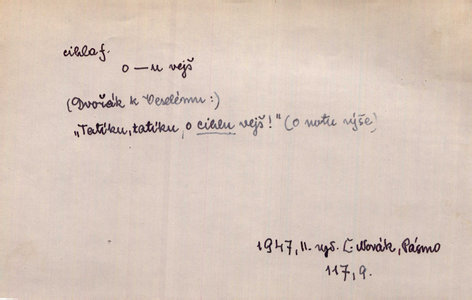 cihla f.
o — u vejš
(Dvořák k Veselému:)
„Tatíku, tatíku, o cihlu vejš!" (o notu výše)
1947, II. vyd. L. Novák, Pásmo
117, 9.